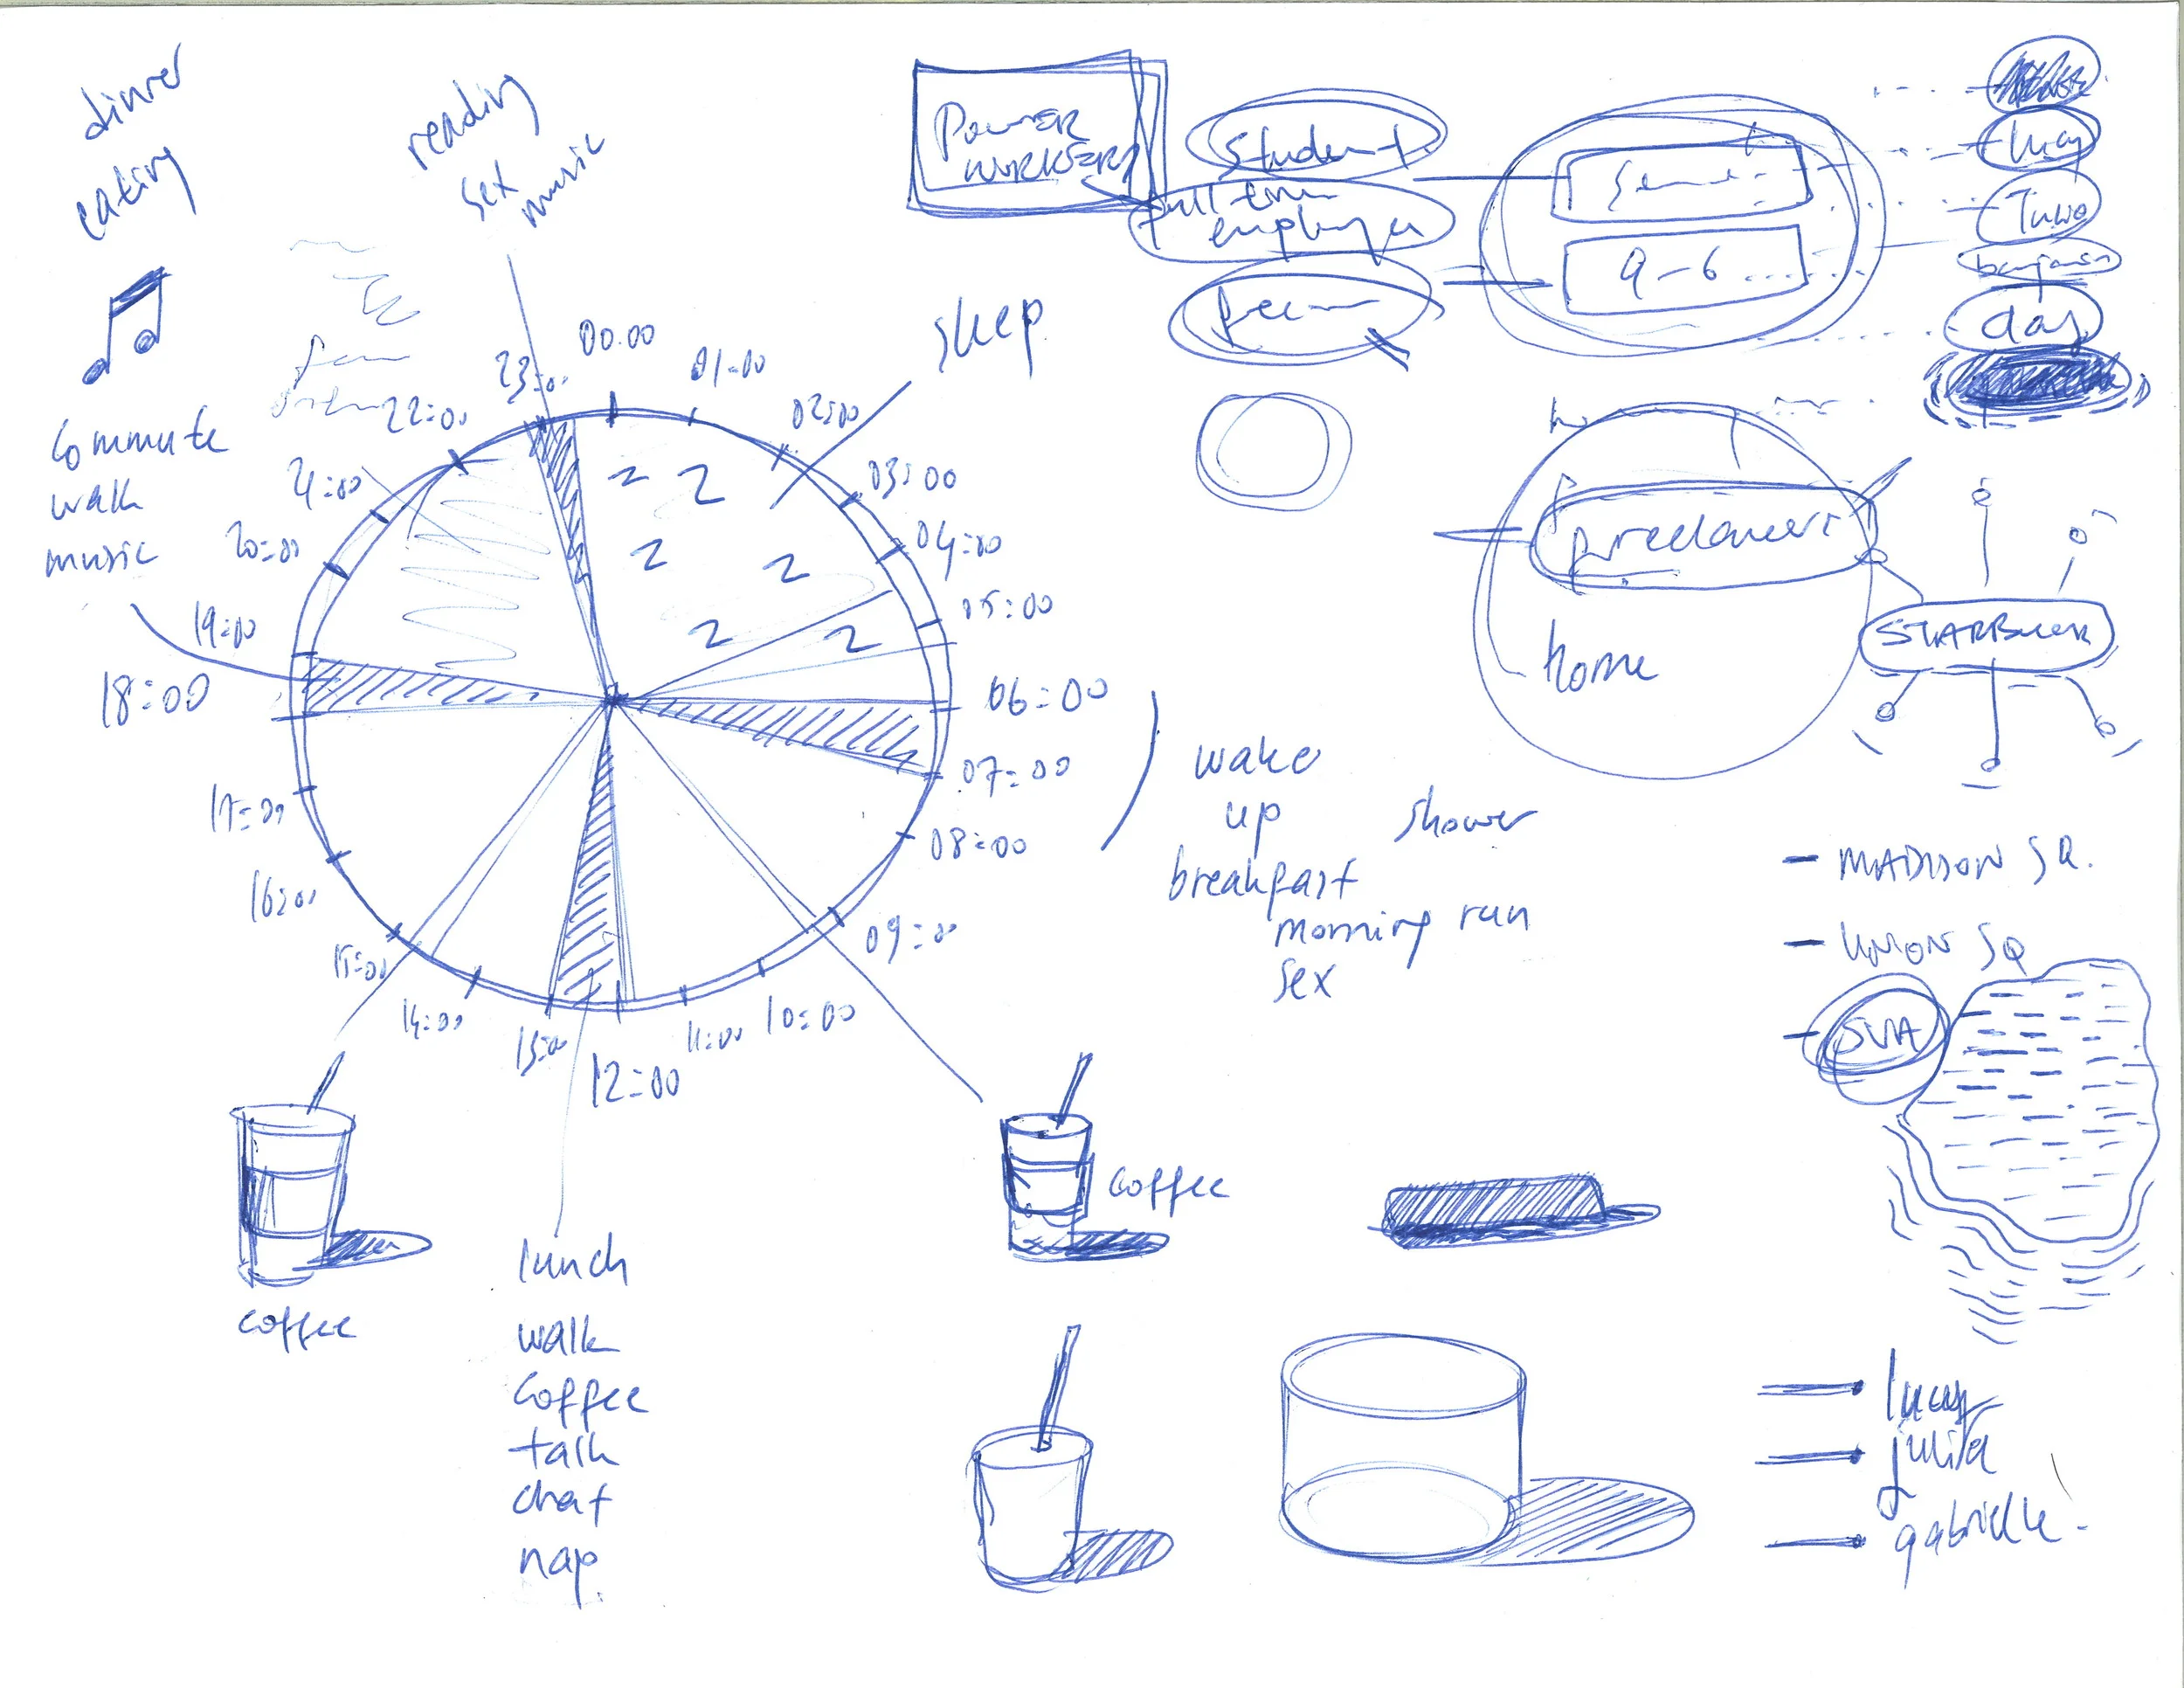 dinner
eating
reading
sex
music
commute
walk
music
sleep
00.00
01:00
02:00
03:00
04:00
05:00
06:00
07:00
08:00
09:00
10:00
11:00
12:00
13:00
14:00
15:00
16:00
17:00
18:00
19:00
20:00
21:00
22:00
23:00
z z
z z
z z
wake
up
shower
breakfast
morning run
sex
coffee
coffee
lunch
walk
coffee
talk
chat
nap.
POWER
WORKERS
student
full time
employee
9-6
day
freelancers
home
- MADISON SQ.
- UNION SQ
- SVA
lucas
julia
gabrielle